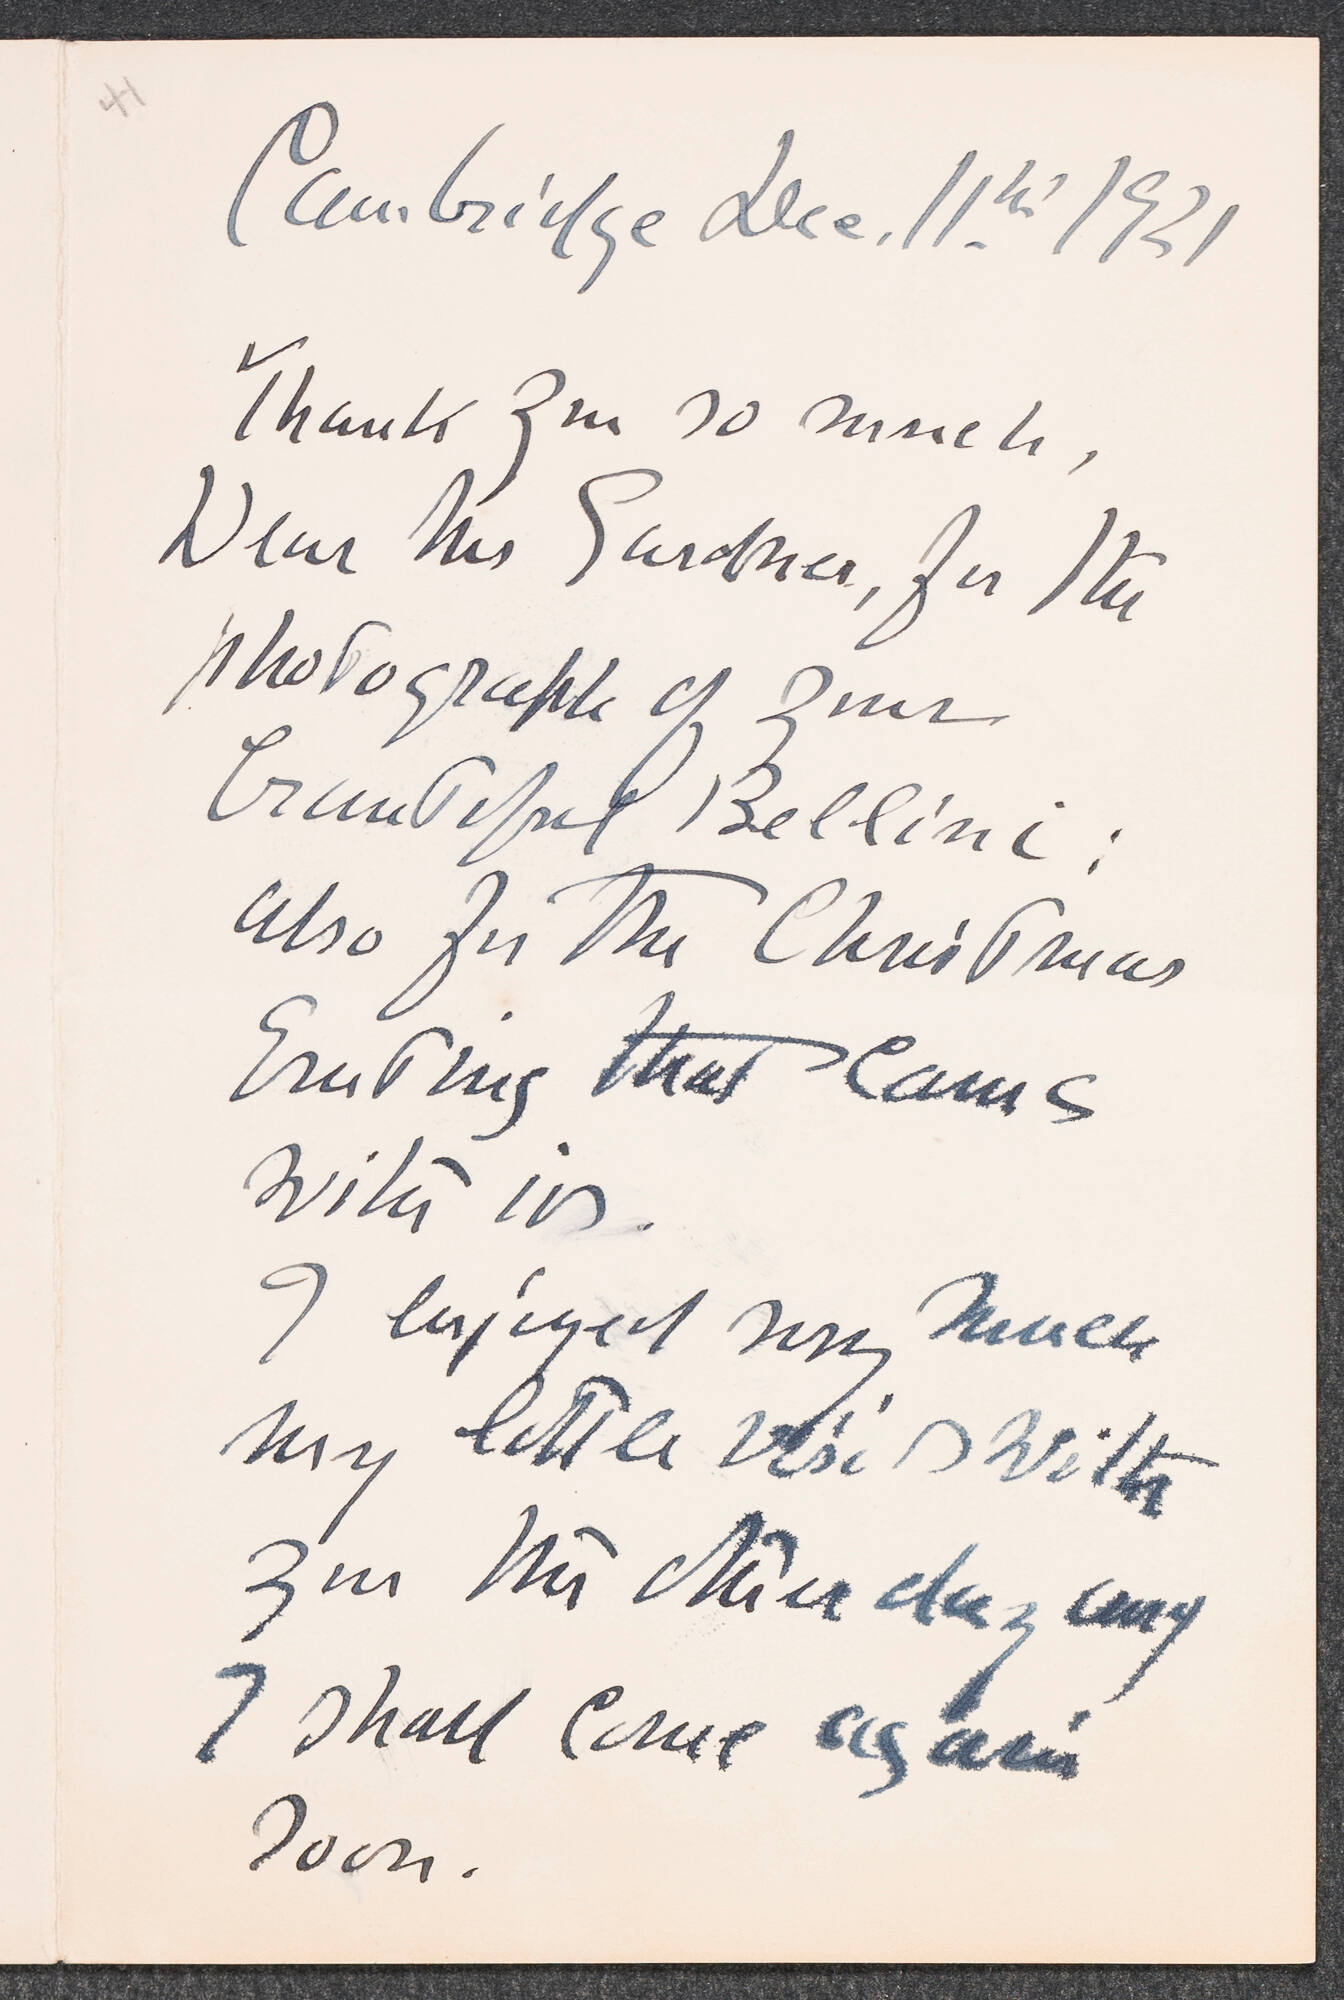 41
Cambridge Dec. 11th 1921
Thank you so much,
Dear Mrs Gardner, for the
photograph of your
beautiful Bellini;
also for the Christmas
Greeting that came
with it.
I enjoyed very much
my little visit with
you the other day and
I shall come again
soon.